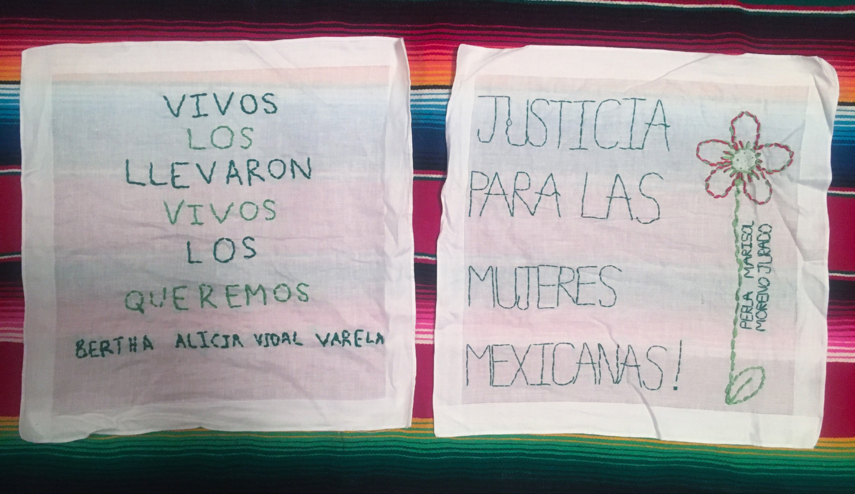 VIVOS
LOS
LLEVARON
VIVOS
LOS
QUEREMOS
BERTHA ALICIA VIDAL VARELA
JUSTICIA
PARA LAS
MUJERES
MEXICANAS!
PERLA MARISOL
MORENO JURADO